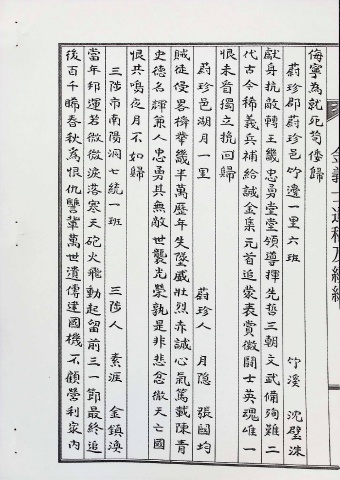 侮寧為就死苟倭歸
蔚珍郡蔚珍邑竹邊一里六班 竹溪 沈璧洙
獻身抗敵轉王畿忠勇堂堂領導揮先哲三朝文武備殉難二
代古今稀義兵補給誠金集元首追蒙表賞徽鬪士英魂雄一
恨未音獨之挽回歸
蔚珍邑湖月一里 蔚珍人 月隐 張國均
賊徒侵畧擠華幾半萬歷年失墜威壯烈赤誠心氣篤載陳青
史德名輝兼人忠勇具無敵世襲光榮孰是非悲忿徹天亡國
恨共鳴夜月不如歸
三陟市南陽洞七統一班 三陟人 素涯 金鎮渙
當年邦運若微微淚落寒天砲火飛動起留前三一節最終追
後百千晞春秋寫恨仇讐輩萬世遺傳達國機不顧營利家內